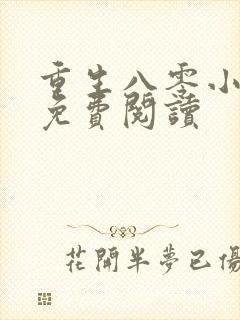 重生八零小
免費閱讀
花開半夢已傷